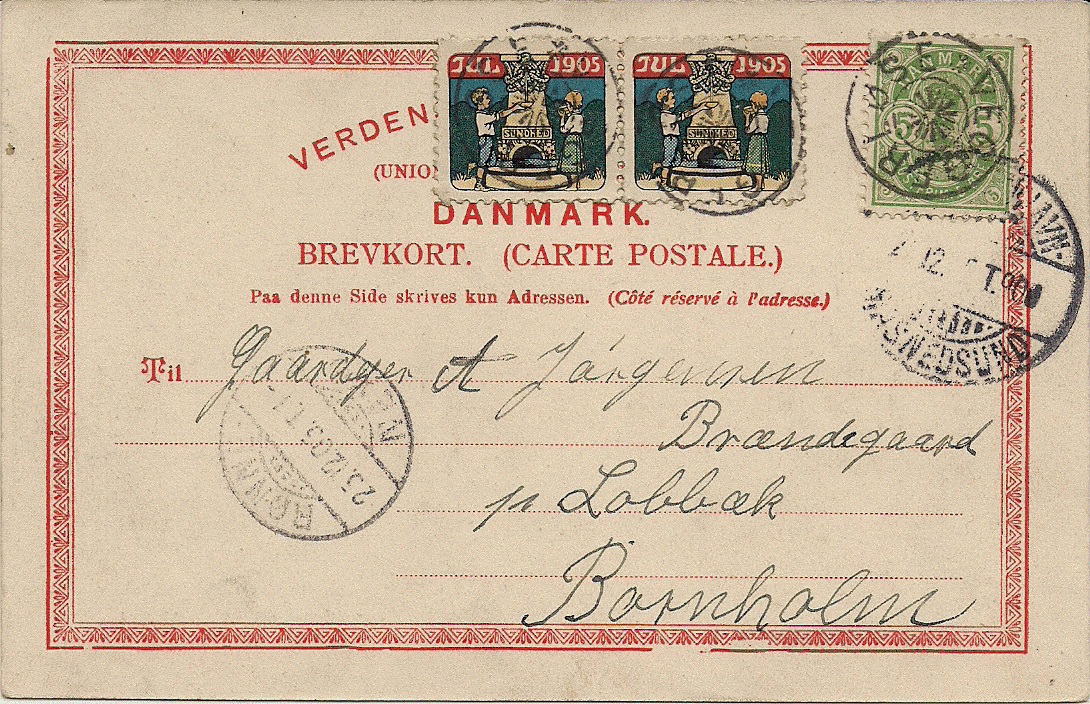 JUL 1905 JUL 1905
SUNDHED SUNDHED
DANMARK
5 5
VERDEN
(UNION
DANMARK.
BREVKORT. (CARTE POSTALE.)
Paa denne Side skrives kun Adressen. (Côté réservé à l'adresse.)
12.
Til Gaardejer A Jörgensen
Brændegaard
p Lobbæk
Bornholm
RØNNE
23.12.05